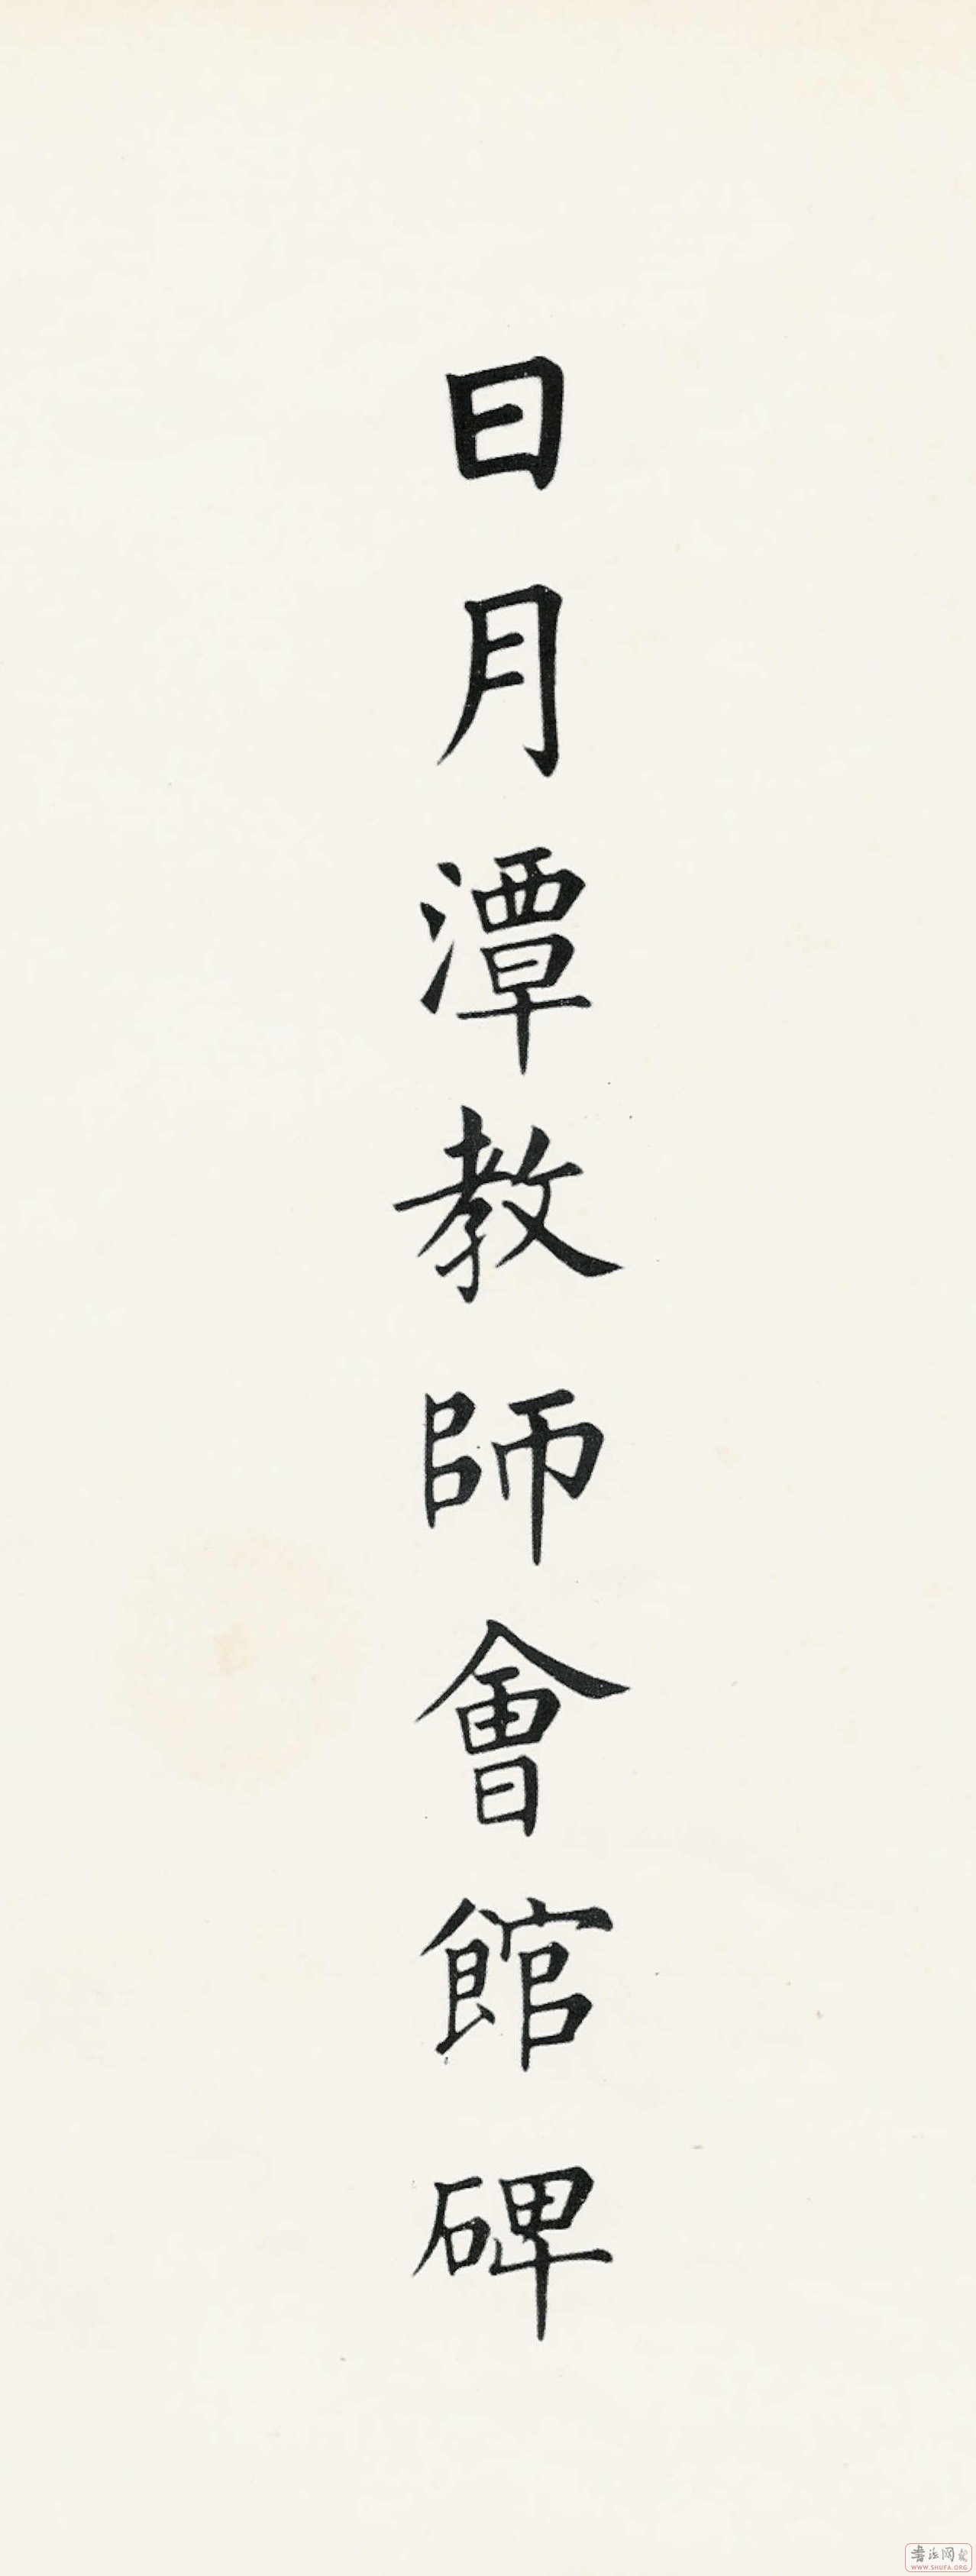 日月潭教師會館碑
書法网
WWW.SHUFA.ORG